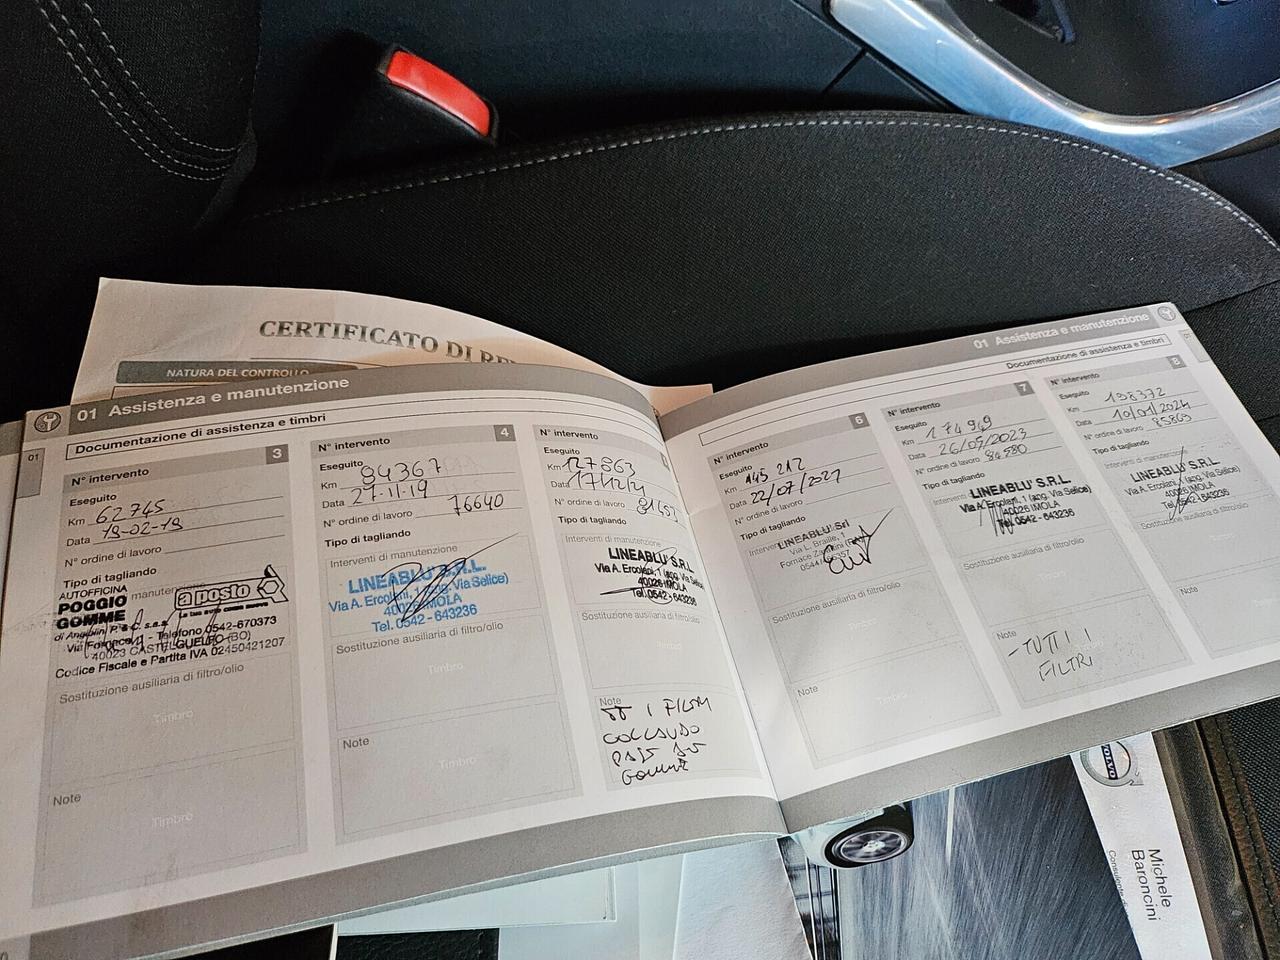 CERTIFICATO DI
NATURA DEL CONTROLLO
01 Assistenza e manutenzione
Documentazione di assistenza e timbri
01
N° intervento 3
Eseguito
Km 62745
Data 19-02-19
N° ordine di lavoro
Tipo di tagliando
AUTOFFICINA
POGGIO
GOMME
a posto
di Angiolin P. & C. s.a.s.
- Telefono 0542-670373
40023 CASTEL GUELFO (BO)
Codice Fiscale e Partita IVA 02450421207
Sostituzione ausiliaria di filtro/olio
Timbro
Note
Timbro
N° intervento 4
Eseguito
Km 84367
Data 27-11-19
N° ordine di lavoro 76640
Tipo di tagliando
Interventi di manutenzione
LINEABLU' S.R.L.
Via A. Ercolani, 1 (ang. Via Selice)
40026 IMOLA
Tel. 0542 - 643236
Sostituzione ausiliaria di filtro/olio
Timbro
Note
Timbro
N° intervento
Eseguito
Km 127863
Data
N° ordine di lavoro
Tipo di tagliando
Interventi di manutenzione
LINEABLU' S.R.L.
Via A. Ercolani, 1 (ang. Via Selice)
40026 IMOLA
Tel. 0542 - 643236
Sostituzione ausiliaria di filtro/olio
Note
I FILTRI
COLLAUDO
GOMME
01 Assistenza e manutenzione
Documentazione di assistenza e timbri
N° intervento 6
Eseguito
Km 145 212
Data 22/07/2021
N° ordine di lavoro
Tipo di tagliando
LINEABLU' Srl
Via L. Braille, 1
Fornace Zarattini (RA)
Sostituzione ausiliaria di filtro/olio
Note
Timbro
N° intervento 7
Eseguito
Km 174949
Data 26/05/2023
N° ordine di lavoro 84580
Tipo di tagliando
LINEABLU' S.R.L.
Via A. Ercolani, 1 (ang. Via Selice)
40026 IMOLA
Tel. 0542 - 643236
Sostituzione ausiliaria di filtro/olio
Note
- TUTTI I
FILTRI
N° intervento 8
Eseguito
Km 198372
Data 10/01/2024
N° ordine di lavoro 85869
Tipo di tagliando
Interventi di manutenzione
LINEABLU' S.R.L.
Via A. Ercolani, 1 (ang. Via Selice)
40026 IMOLA
Tel. 0542-643236
Sostituzione ausiliaria di filtro/olio
Note
VOLVO
Michele
Baroncini